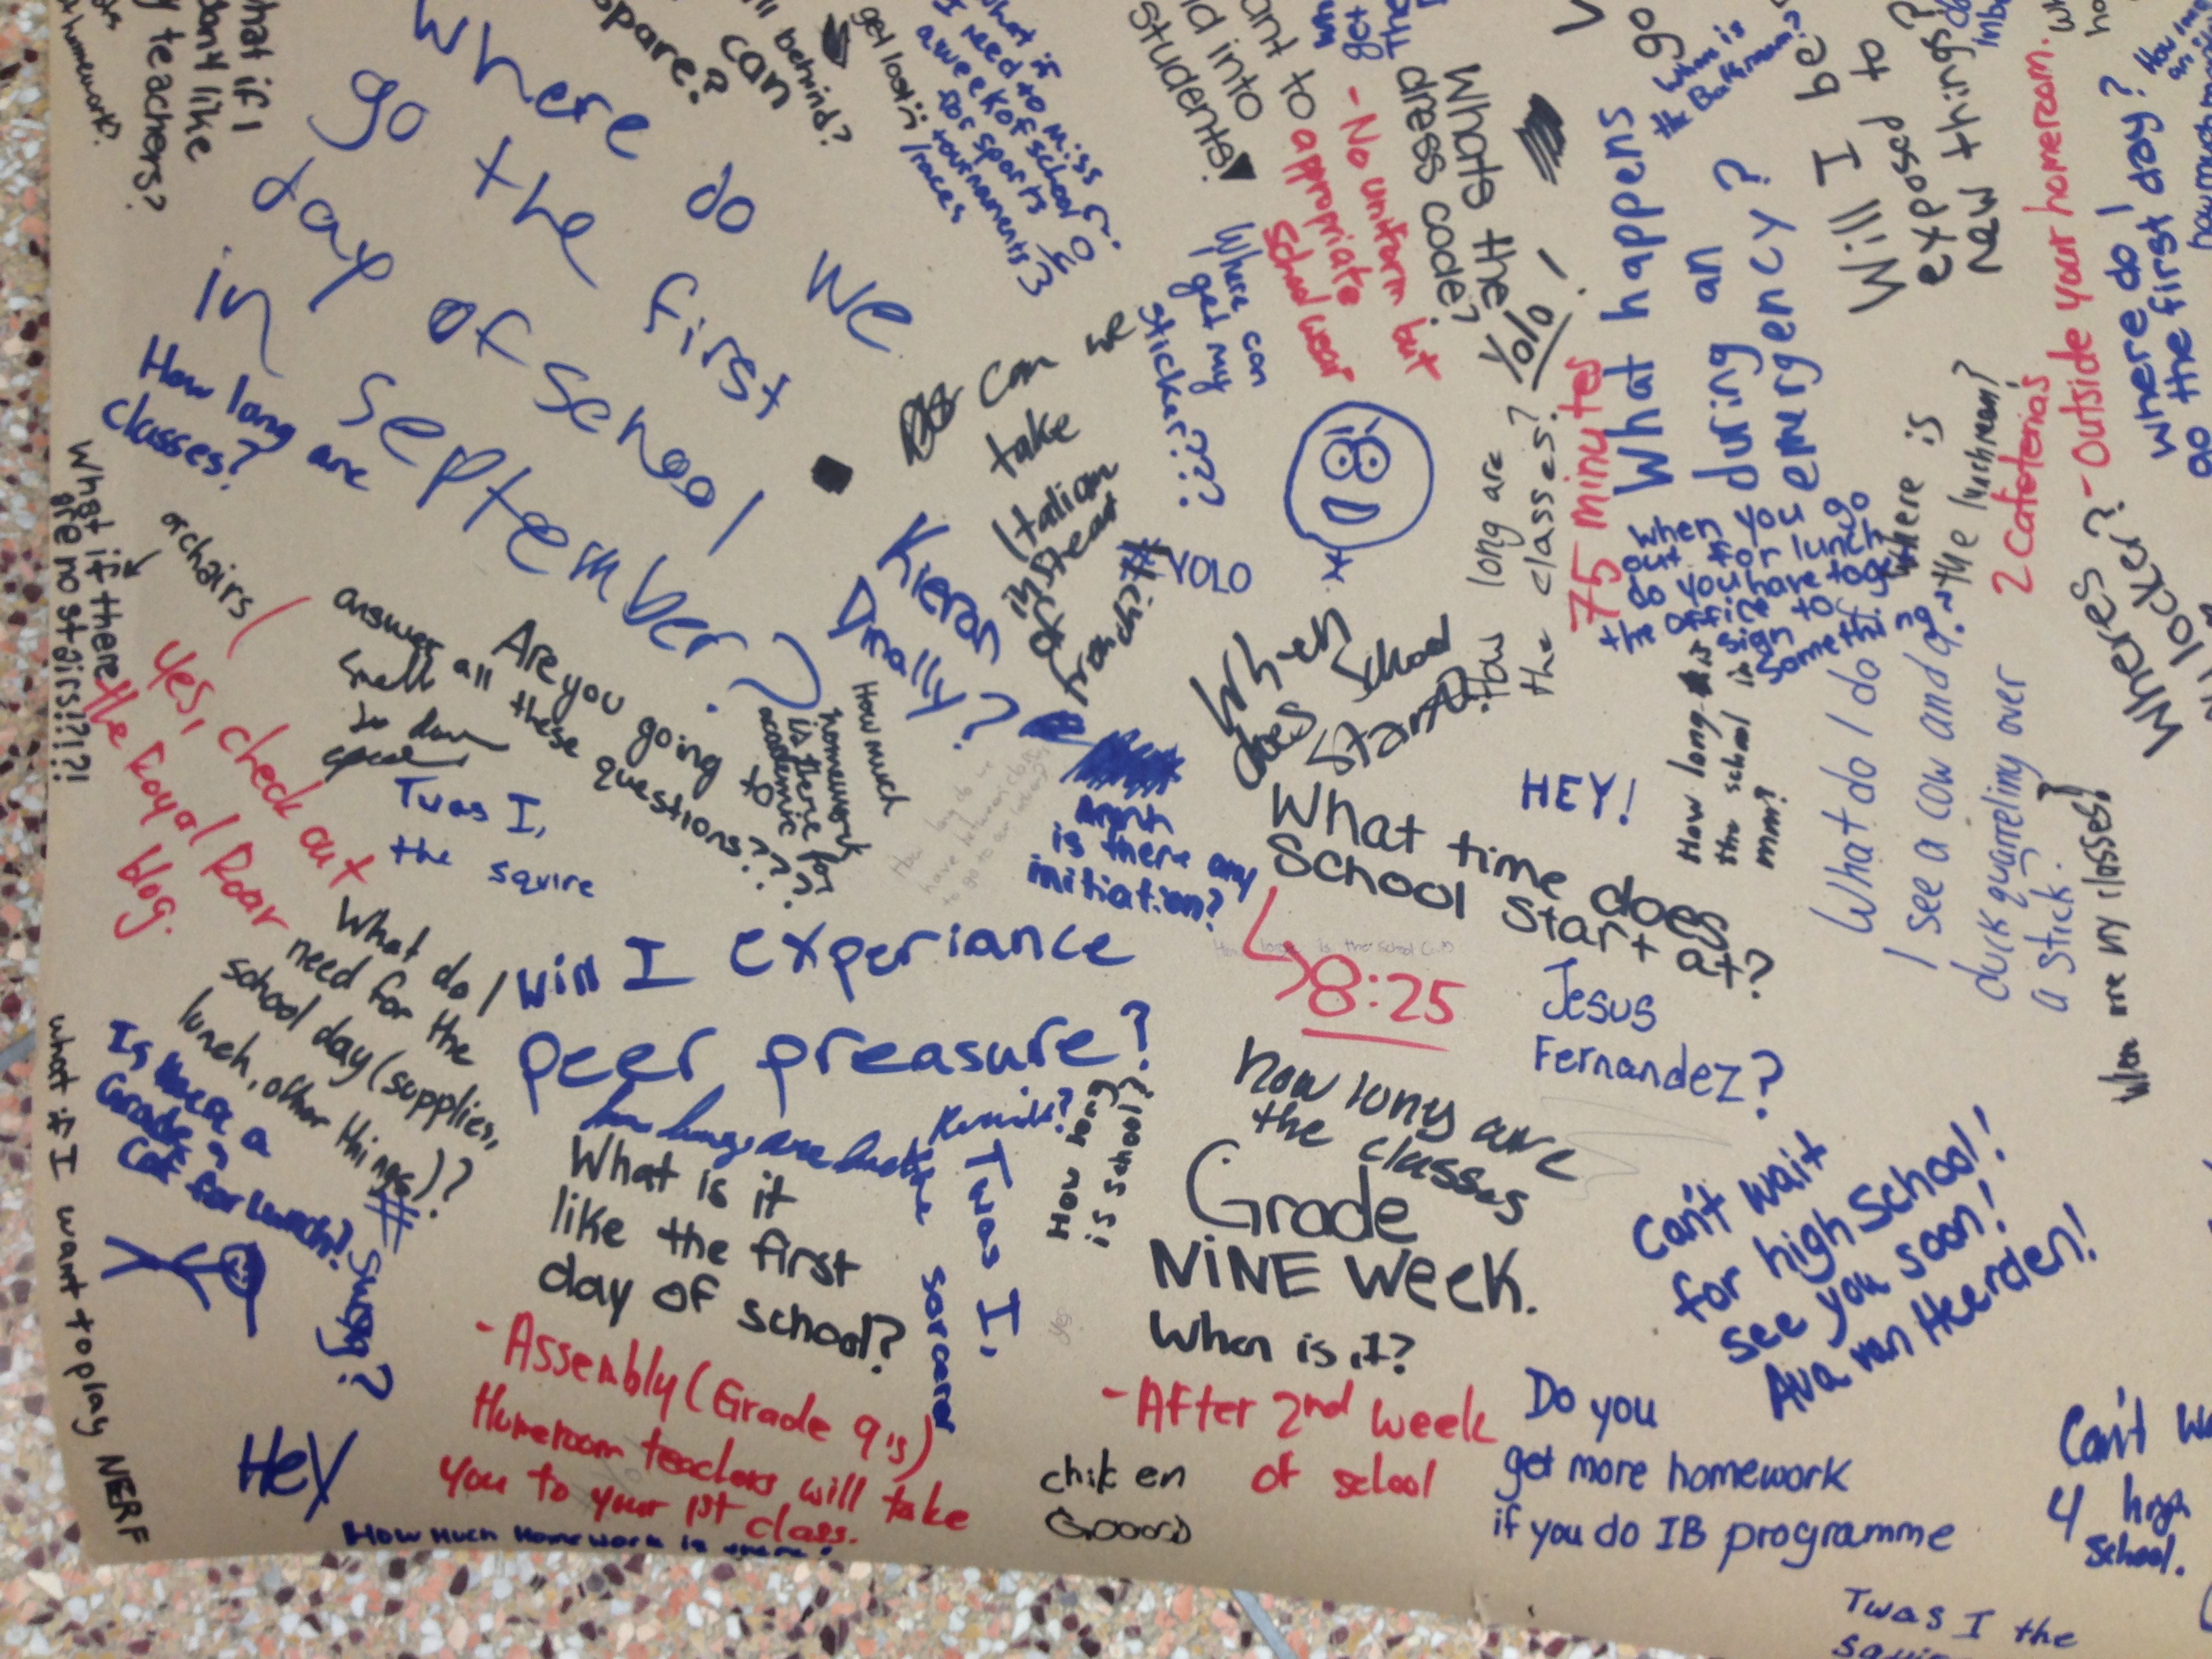 What if I
don't like
teachers?
homework?
Where do we
go the first
day of school
in September?
spare?
can
behind?
get lost in
What if
I need to miss
a week of school
for sports
tournaments
/races
students!
into
ant to
- No uniform but
appropriate
school wear
Whats the
dress code?
Yolo!
go
What happens
during an
emergency?
Will I be
exposed to
new things?
- Outside your homeroom.
where do I
go the first day?
How long are
classes?
What if there
are no stairs!?!?!
or chairs
Yes, check out
the Royal Roar
blog.
Are you going to
answer all these questions????
Twas I,
the squire
Can we
take
Italian
instead
of
french?
Where can
get my
sticker????
#YOLO
Kieran
Dinally?
How much
homework
is there for
academic
is there any
initiation?
When
does School
Start?
How long are
the classes?
75 minutes
When you go
out for lunch
do you have to go to
the office
sign to
Where is
the lunchroom?
2 Cafeterias
Wheres
my locker?
HEY!
How long is
the school in
mm?
What do I do
I see a cow and a
duck quarreling over
a stick.
When are my classes?
What time does
School Start at?
8:25
Jesus
Fernandez?
Will I experiance
peer preasure?
What do I
need for the
school day (supplies,
lunch, other things)?
Is there a
Grade 9
Caf for lunch?
# Swag?
what if I want to play NERF
Hey
What is it
like the first
day of school?
- Assembly (Grade 9's)
Homeroom teachers will take
you to your 1st class.
How much homework is there?
Twas I,
the sorcerer
How long
is school?
yes
how long are
the classes
Grade
NiNE Week.
When is it?
- After 2nd week
of school
chiken
Gooood
Can't wait
for high School!
See you soon!
Ava van Heerden!
Do you
get more homework
if you do IB programme
Can't wa
4 high
School.
Twas I the